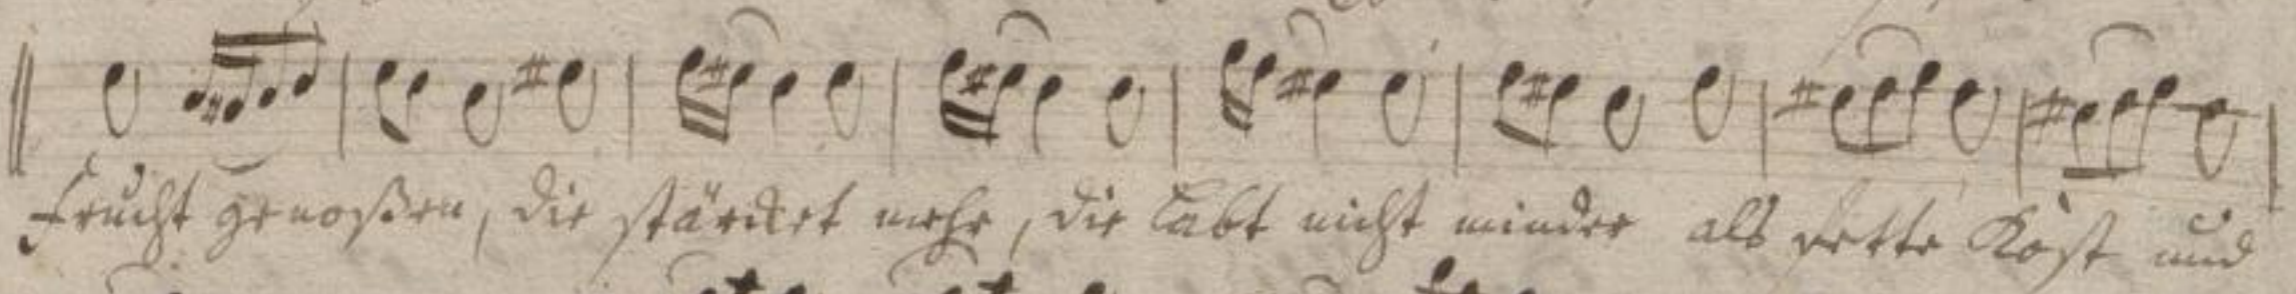 Frucht genoßen, die stärcket mehr, die labt nicht minder als fette Kost und